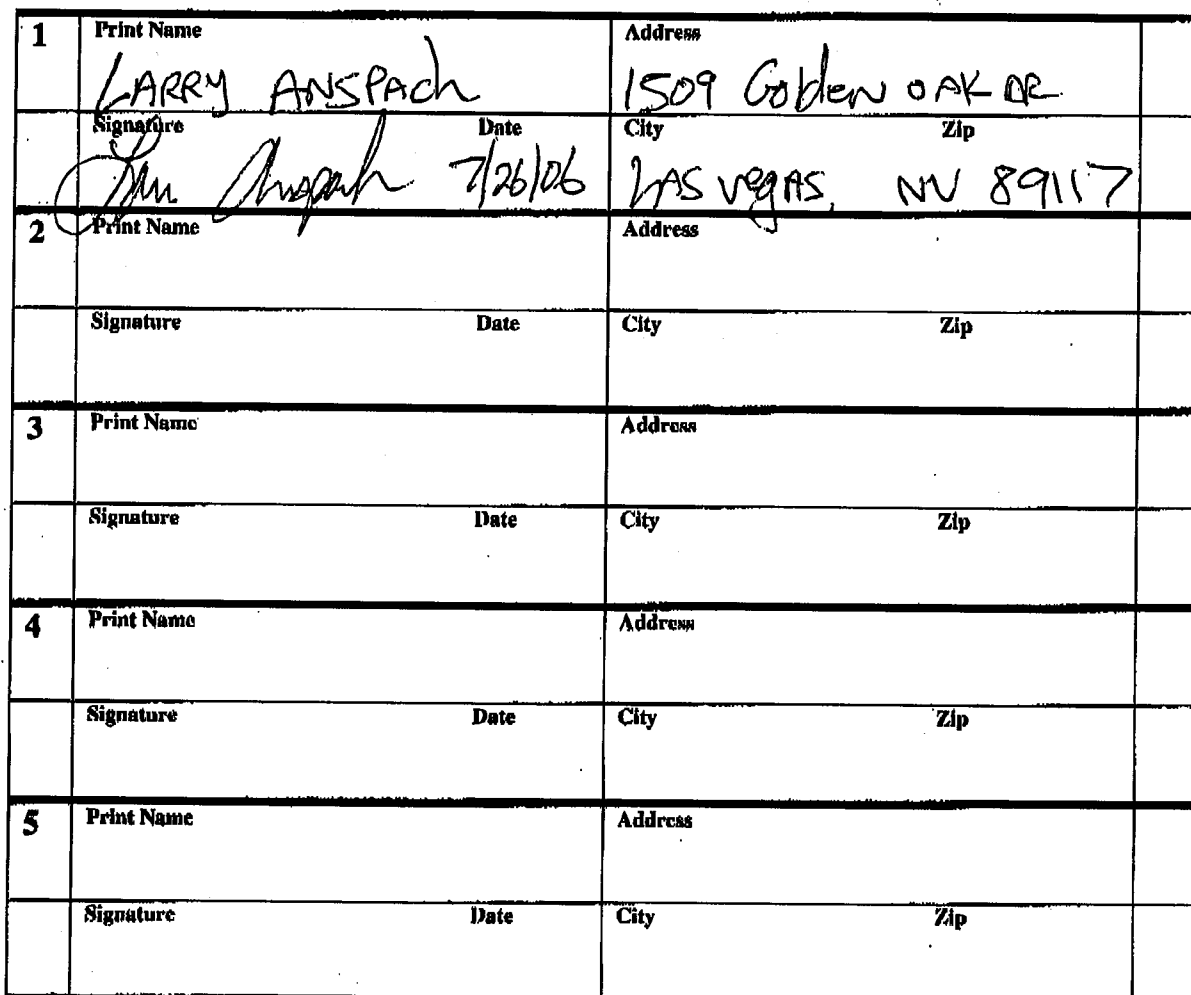 1 Print Name Address
LARRY ANSPACh 1509 Golden OAK DR
Signature Date City Zip
Larry Anspach 7/26/06 LAS VegAS, NV 89117
2 Print Name Address
Signature Date City Zip
3 Print Name Address
Signature Date City Zip
4 Print Name Address
Signature Date City Zip
5 Print Name Address
Signature Date City Zip